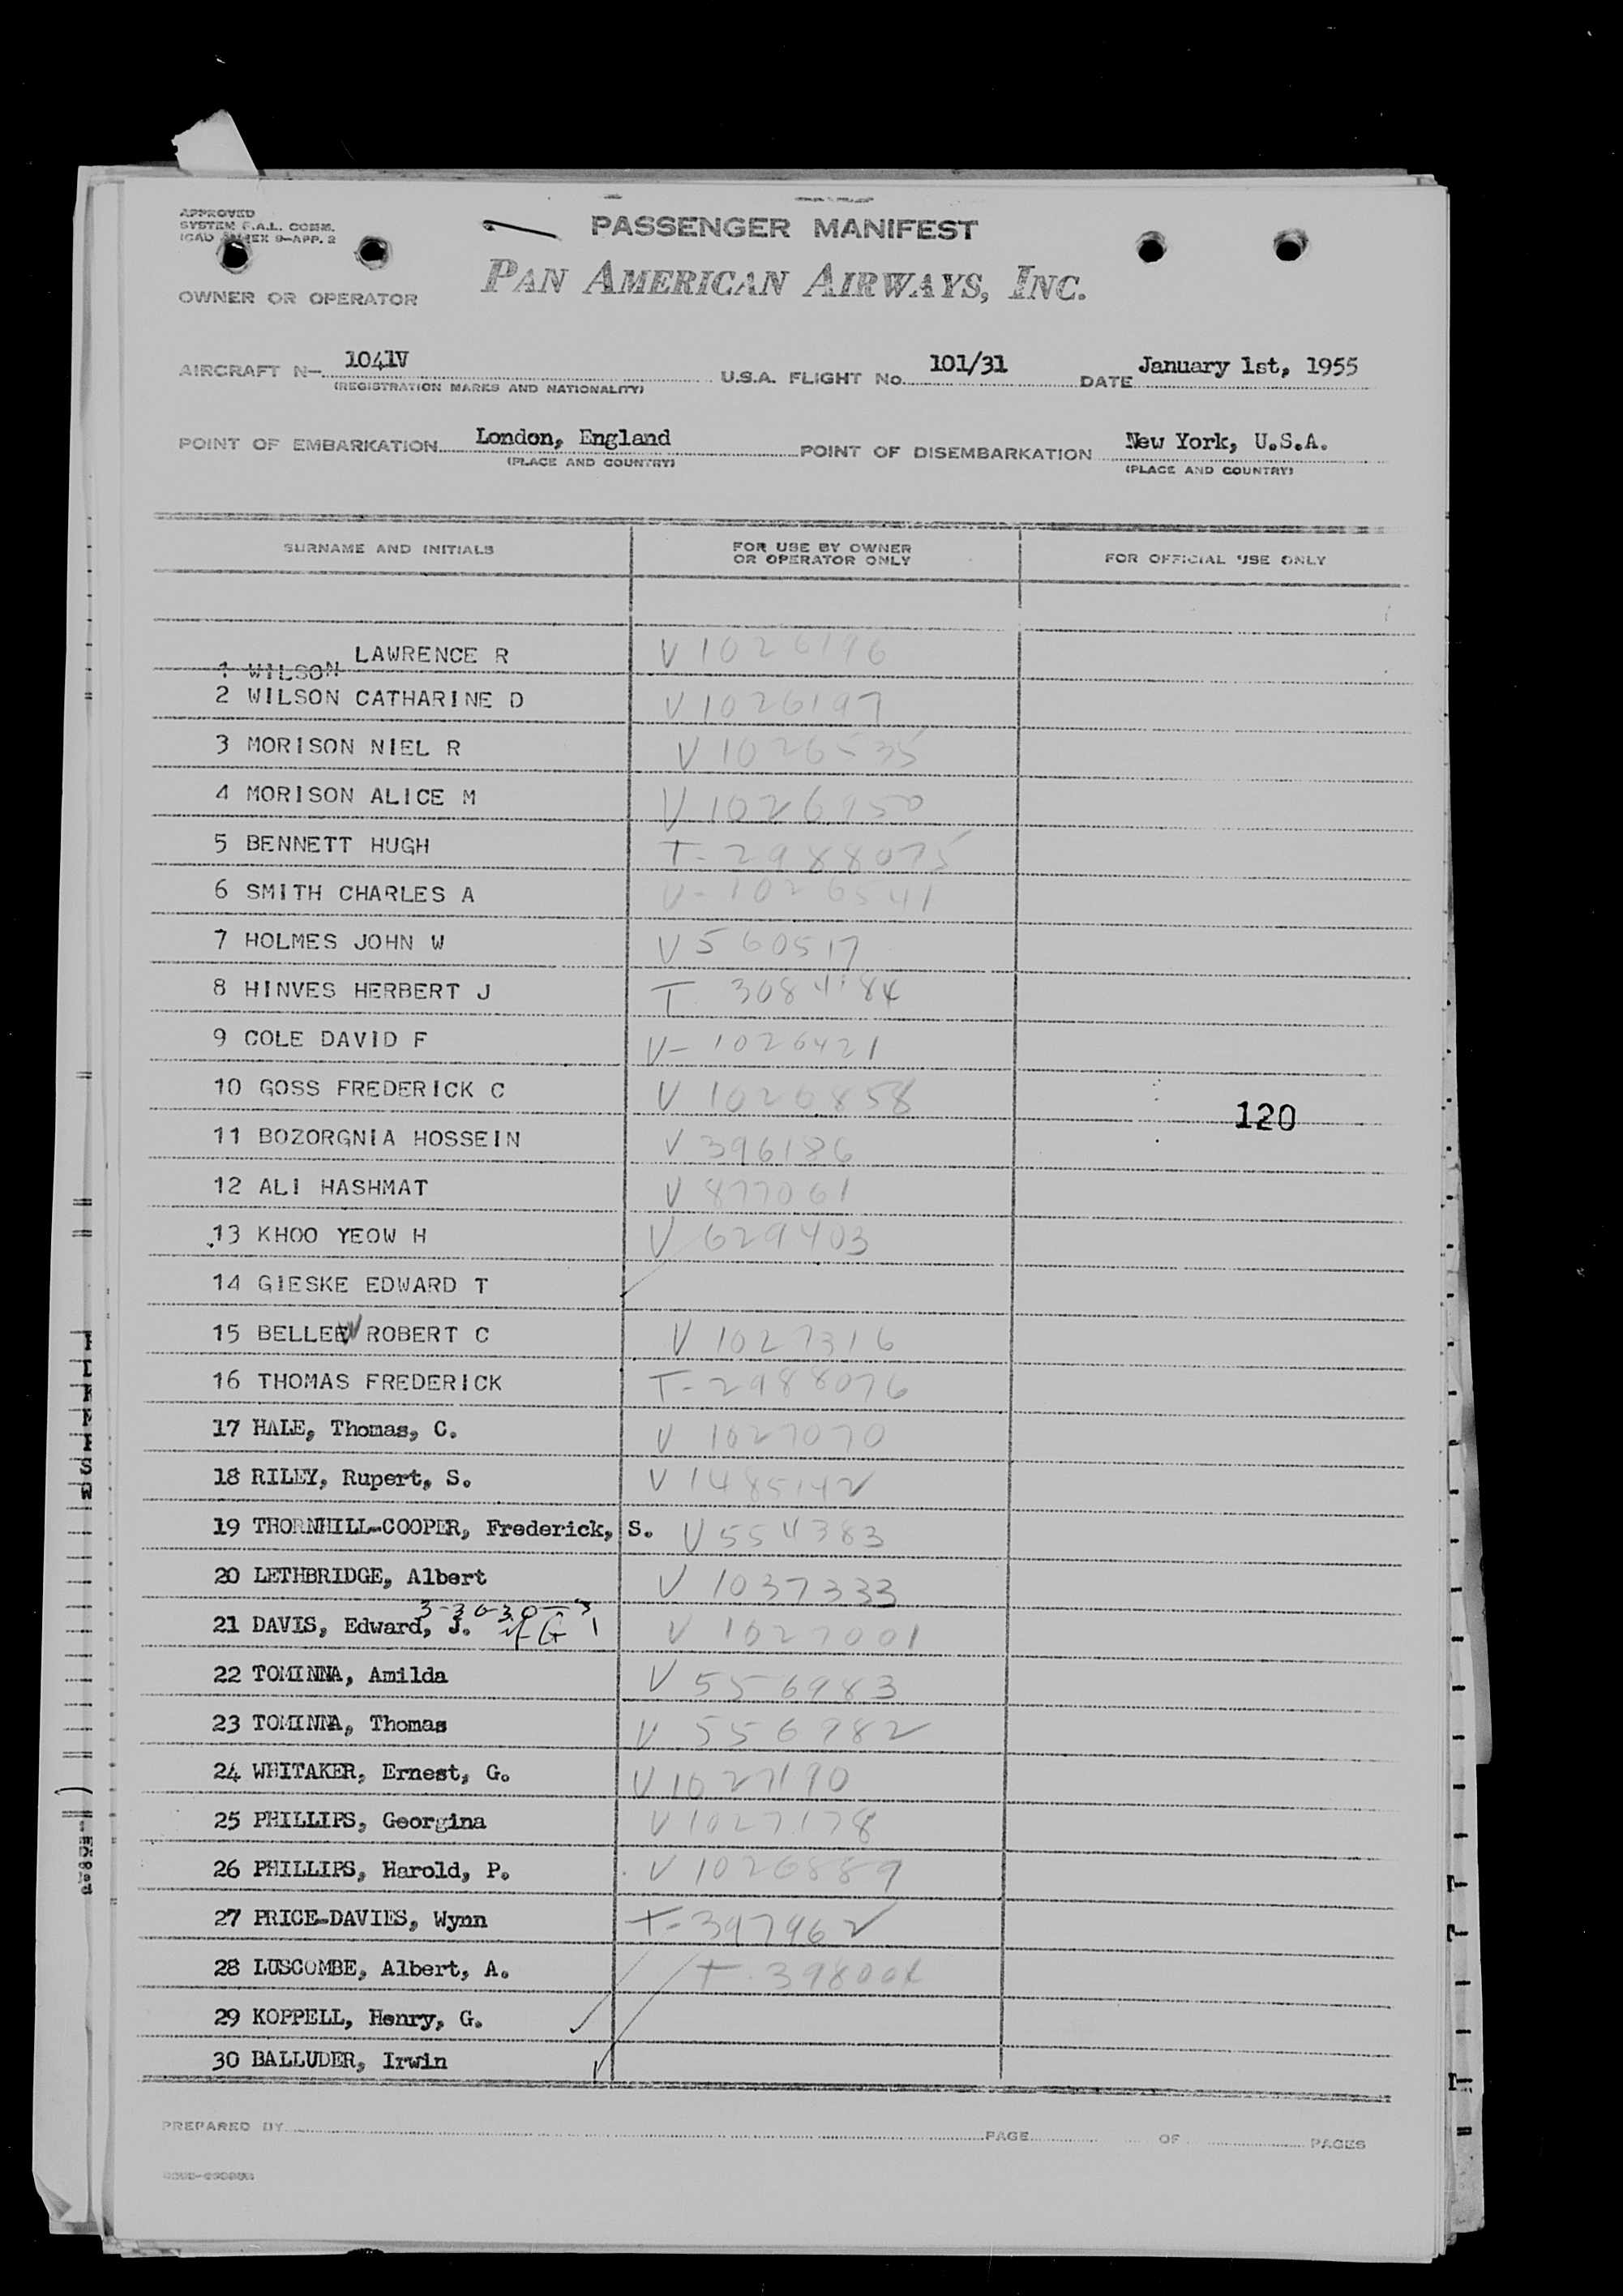 APPROVED
SYSTEM F.A.L. COMM.
ICAO ANNEX 9-APP. 2
PASSENGER MANIFEST
PAN AMERICAN AIRWAYS, INC.
OWNER OR OPERATOR
AIRCRAFT N- 1041V U.S.A. FLIGHT No. 101/31 DATE January 1st, 1955
(REGISTRATION MARKS AND NATIONALITY)
POINT OF EMBARKATION London, England POINT OF DISEMBARKATION New York, U.S.A.
(PLACE AND COUNTRY) (PLACE AND COUNTRY)
SURNAME AND INITIALS FOR USE BY OWNER OR OPERATOR ONLY FOR OFFICIAL USE ONLY
1 WILSON LAWRENCE R V 1026196
2 WILSON CATHARINE D V 1026197
3 MORISON NIEL R V 1026535
4 MORISON ALICE M V 1026950
5 BENNETT HUGH T-2988075
6 SMITH CHARLES A V-1026541
7 HOLMES JOHN W V 560517
8 HINVES HERBERT J T 3084184
9 COLE DAVID F V-1026421
10 GOSS FREDERICK C V 1026858
120
11 BOZORGNIA HOSSEIN V 396186
12 ALI HASHMAT V 877061
13 KHOO YEOW H V 629403
14 GIESKE EDWARD T
15 BELLEW ROBERT C V 1027316
16 THOMAS FREDERICK T-2988076
17 HALE, Thomas, C. V 1027070
18 RILEY, Rupert, S. V 1485142
19 THORNHILL-COOPER, Frederick, S. V 554383
20 LETHBRIDGE, Albert V 1037333
21 DAVIS, Edward, J. V 1027001
22 TOMINNA, Amilda V 556983
23 TOMINNA, Thomas V 556982
24 WHITAKER, Ernest, G. V 1027190
25 PHILLIPS, Georgina V 1027178
26 PHILLIPS, Harold, P. V 1026889
27 PRICE-DAVIES, Wynn T-397962
28 LUSCOMBE, Albert, A. T-398004
29 KOPPELL, Henry, G.
30 BALLUDER, Irwin
PREPARED BY PAGE OF PAGES